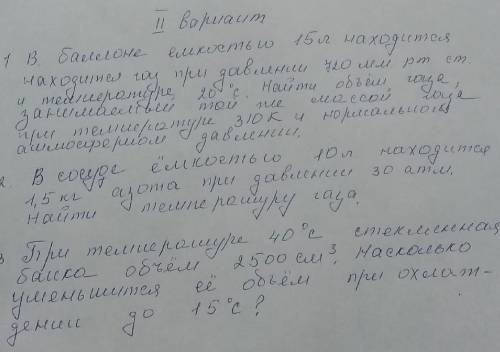 II вариант
1 В баллоне ёмкостью 15л находится
находится газ при давлении 720 мм рт ст.
и температуре 20°с. Найти объём газа,
занимаемый той же массой газа
при температуре 310К и нормальном
атмосферном давлении.
2. В сосуде ёмкостью 10л находится
1,5 кг азота при давлении 30 атм.
Найти температуру газа.
3 При температуре 40°с стеклянная
банка объём 2500см³. Насколько
уменьшится её объём при охлаж-
дении до 15°с?